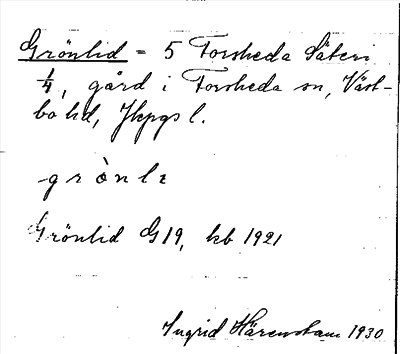 Grönlid = 5 Forsheda Säteri
1/4, gård i Forsheda sn, Väst-
bo hd, Jkpgs l.
grònlɩ
Grönlid G19, kb 1921
Ingrid Härenstam 1930